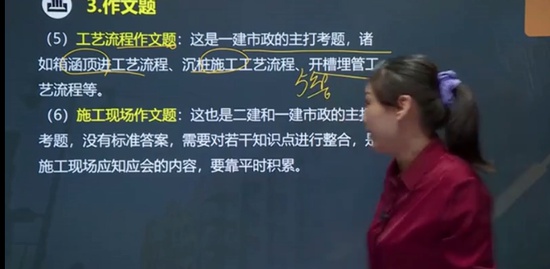 3.作文题
（5）工艺流程作文题：这是一建市政的主打考题，诸
如箱涵顶进工艺流程、沉桩施工工艺流程、开槽埋管工
艺流程等。
（6）施工现场作文题：这也是二建和一建市政的主
考题，没有标准答案，需要对若干知识点进行整合，
施工现场应知应会的内容，要靠平时积累。